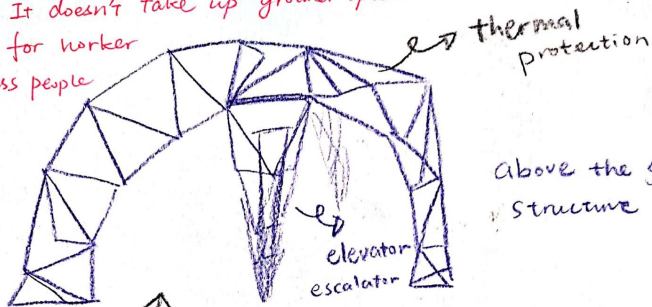 It doesn't take up
for worker
people
thermal
protection
above the
structure
elevator
escalator